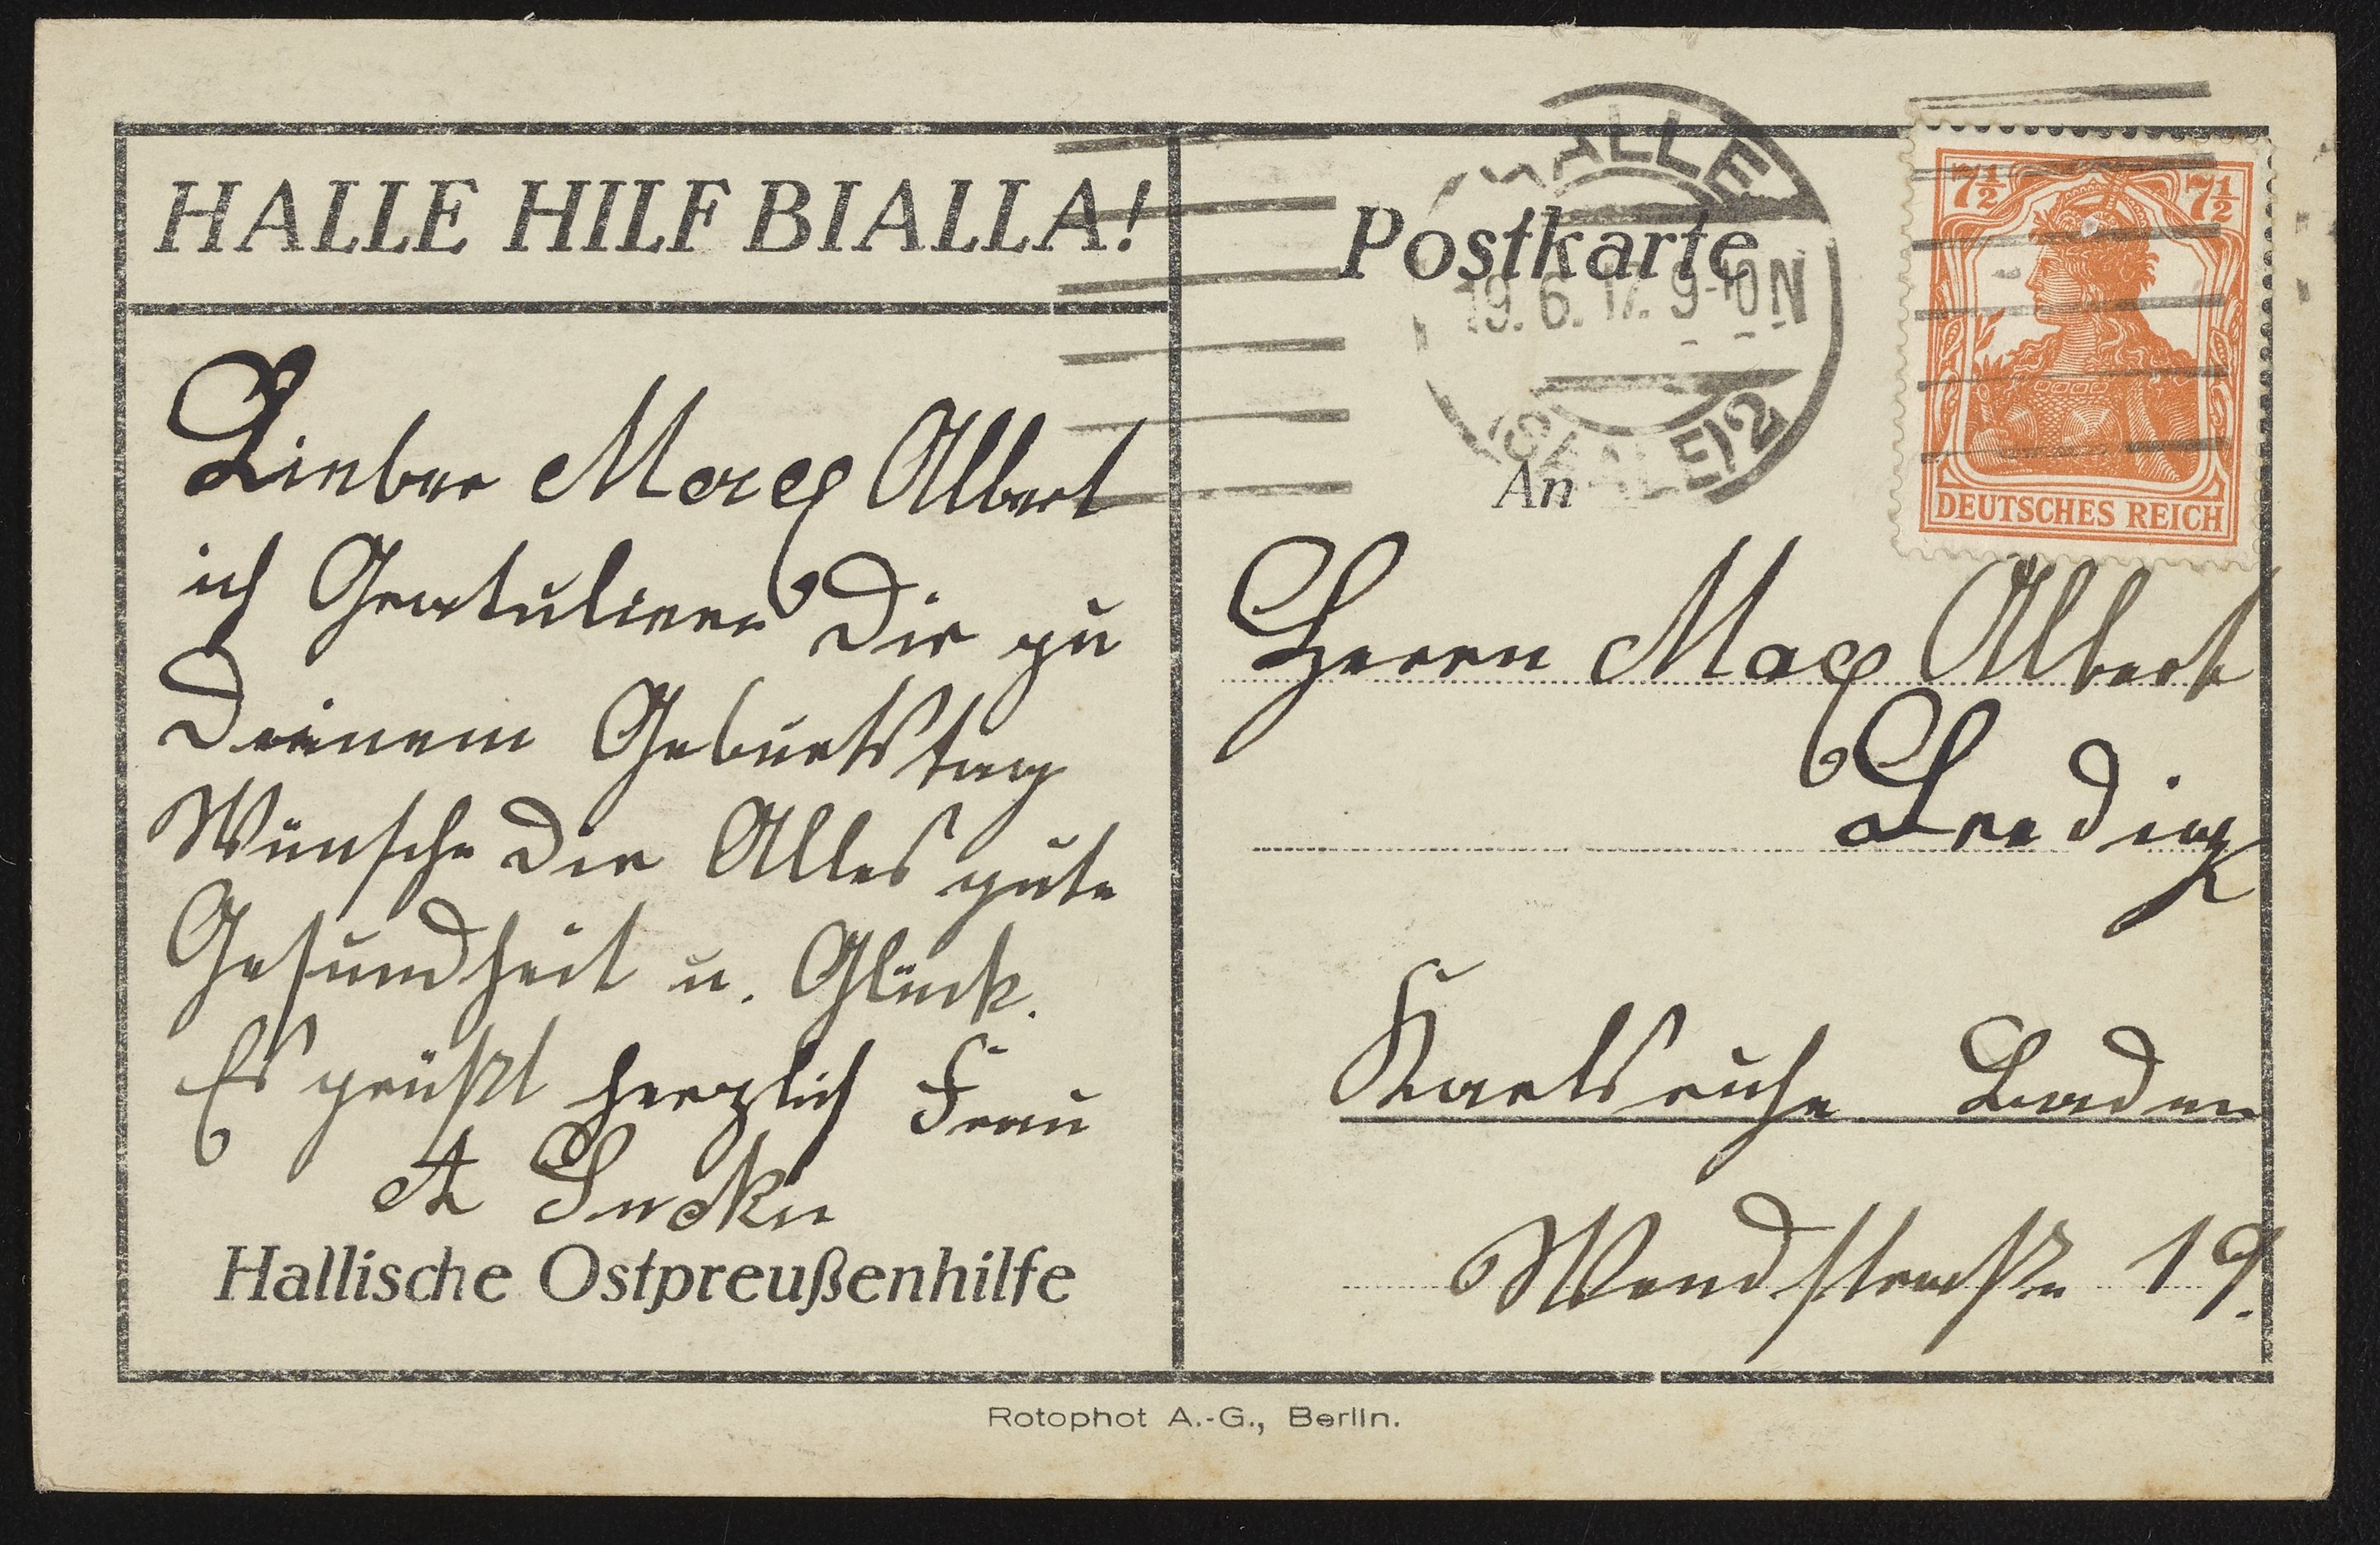 HALLE HILF BIALLA!
Lieber Max Albert
ich Gratuliere Dir zu
Deinem Geburtstag
Wünsche Dir Alles gute
Gesundheit u. Glück.
Es grüßt herzlich Frau
A
Hallische Ostpreußenhilfe
Postkarte
HALLE
19.6.17. 9-10N
(SAALE) 2
7½ 7½
DEUTSCHES REICH
An
Herrn Max Albert
Karlsruhe Baden
Wendstraße 19.
Rotophot A.-G., Berlin.